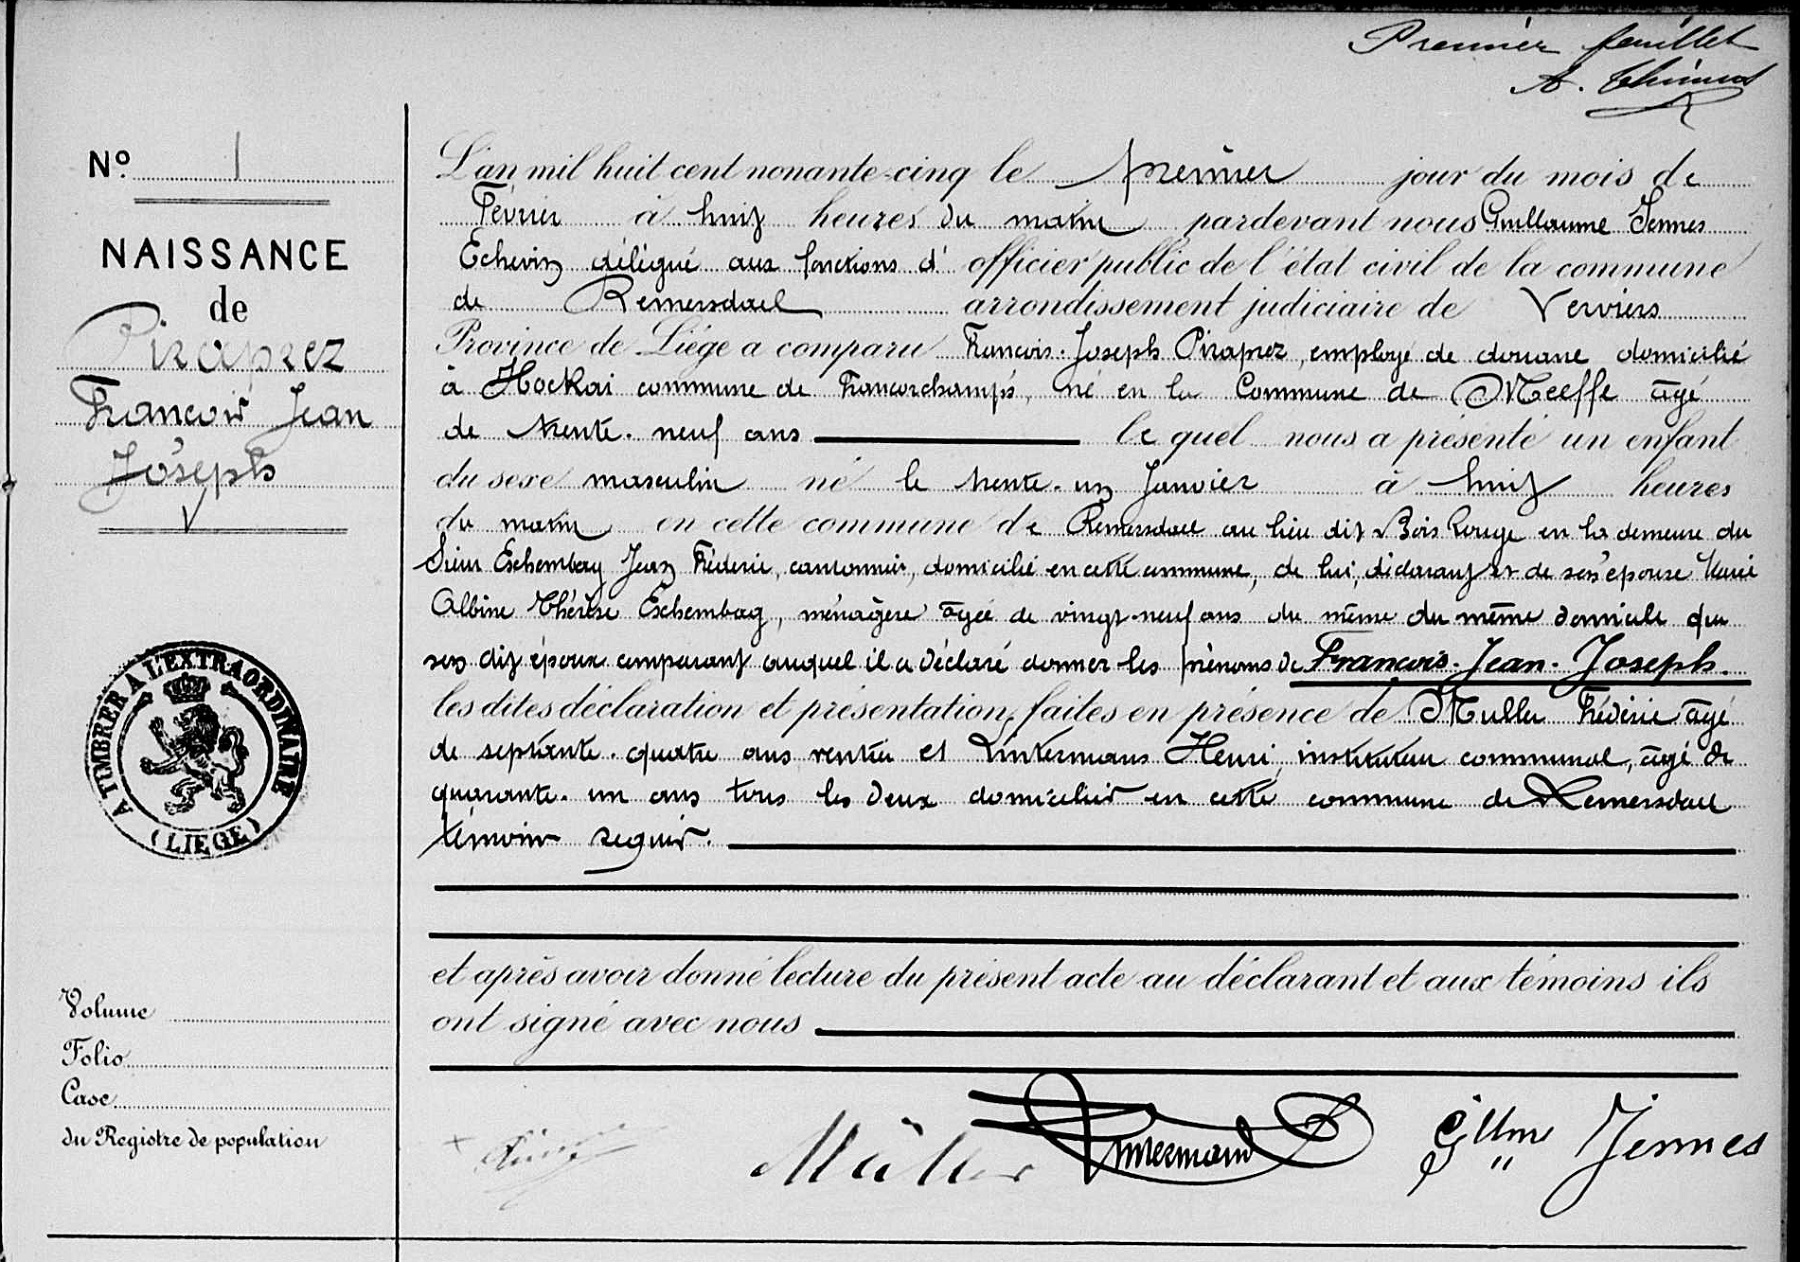 Premier feuillet
A. Thimus
Nº 1
NAISSANCE
de
Piraprez
François Jean
Joseph
A TIMBRER A L'EXTRAORDINAIRE
(LIEGE)
Volume
Folio
Case
du Registre de population
L'an mil huit cent nonante-cinq le premier jour du mois de
Février à huit heures du matin pardevant nous Guillaume Jennes
Echevin délégué aux fonctions d'officier public de l'état civil de la commune
de Remersdael arrondissement judiciaire de Verviers
Province de Liége a comparu Francois-Joseph Piraprez, employé de douane domicilié
à Hockai commune de Francorchamps, né en la Commune de Meeffe agé
de trente-neuf ans lequel nous a présenté un enfant
du sexe masculin né le trente-un Janvier à huit heures
du matin en cette commune de Remersdael au lieu dit Bois Rouge en la demeure du
Sieur Eschembag Jean Fréderic, cantonnier, domicilié en cette commune, de lui, déclarant et de son épouse Marie
Albine Thérèse Eschembag, ménagère agée de vingt-neuf ans du même du même domicile que
son dit époux comparant auquel il a déclaré donner les prénoms de François-Jean-Joseph.
les dites déclaration et présentation, faites en présence de Muller Fréderic agé
de septante-quatre ans rentier et Lintermans Henri, instituteur communal, agé de
quarante-un ans tous les deux domiciliés en cette commune de Remersdael
témoins requis.
et après avoir donné lecture du présent acte au déclarant et aux témoins ils
ont signé avec nous
Müller Lintermans Gillme Jennes